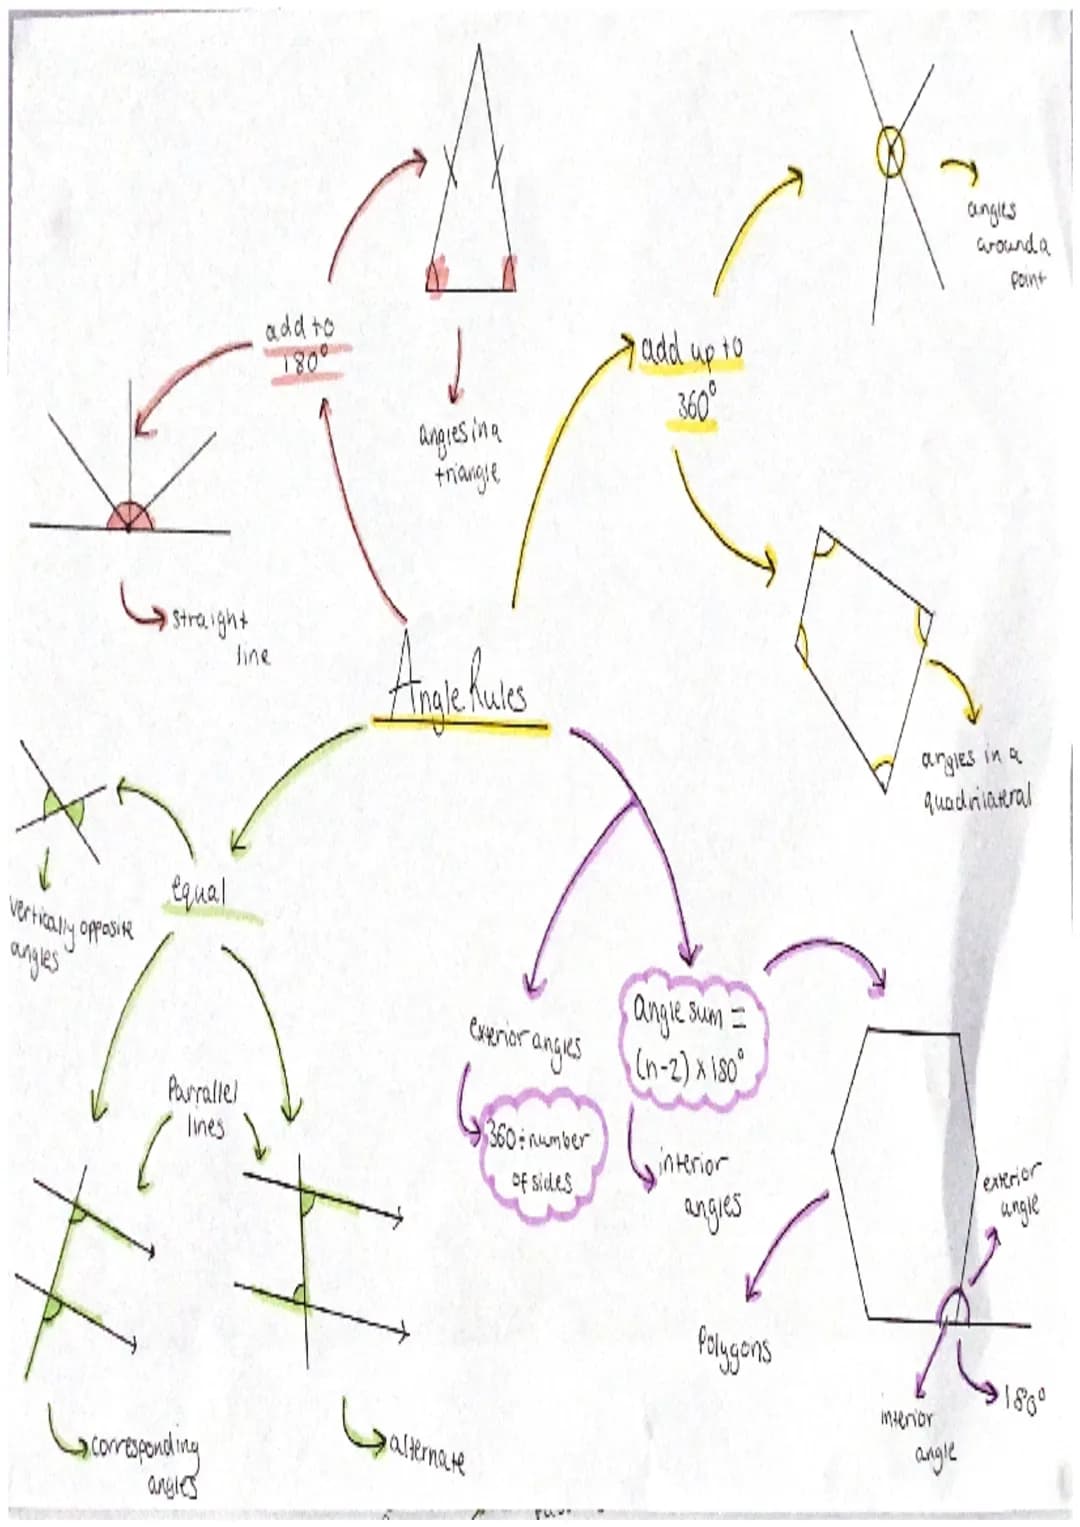 Angle Rules
add to
180°
angles in a
triangle
straight
line
add up to
360°
angles
around a
point
angles in a
quadrilateral
equal
vertically opposite
angles
Parrallel
lines
corresponding
angles
alternate
exterior angles
360÷number
of sides
Angle sum =
(n-2) x 180°
interior
angles
Polygons
exterior
angle
interior
angle
180°